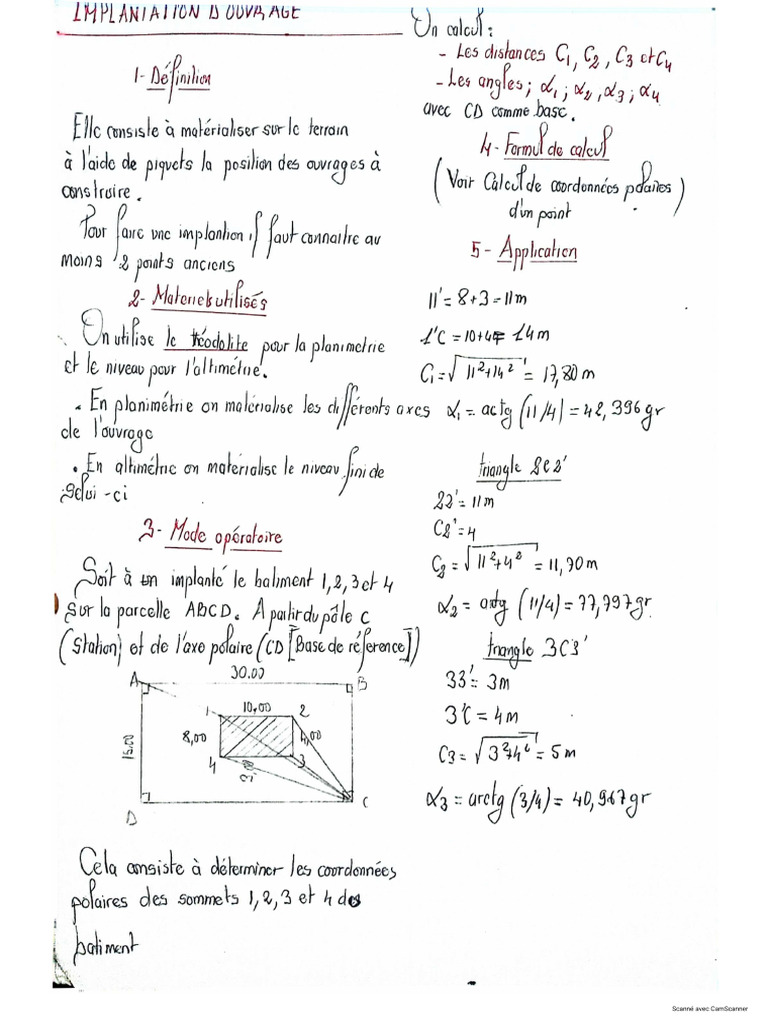 IMPLANTATION D'OUVRAGE
1- Définition
Elle consiste à matérialiser sur le terrain
à l'aide de piquets la position des ouvrages à
construire.
Pour faire une implantion if faut connaitre au
moins 2 points anciens
2- Materiels utilisés
On utilise le théodolite pour la planimetrie
et le niveau pour l'altimétrie.
. En planimétrie on matérialise les différents axes
de l'ouvrage
. En altimétrie on matérialise le niveau fini de
celui-ci
3- Mode opératoire
Soit à implanté le batiment 1,2,3 et 4
sur la parcelle ABCD. A partir du pôle C
(Station) et de l'axe polaire (CD [Base de référence])
30.00
A
B
1
10,00
2
15.00
8,00
4,00
4
3
3,00
D
C
Cela consiste à déterminer les coordonnées
polaires des sommets 1,2,3 et 4 des
batiment
On calcul :
- Les distances C1, C2, C3 et C4
- Les angles; α1; α2, α3; α4
avec CD comme base.
4- Formul de calcul
(Voir Calcul de coordonnées polaires)
d'un point
5- Application
11' = 8+3 = 11m
1'C = 10+4 = 14m
C1 = √11²+14² = 17,80 m
α1 = actg (11/4) = 42,396 gr
triangle 2C2'
22' = 11m
C2' = 4
C2 = √11²+4² = 11,70 m
α2 = arctg (11/4) = 77,797 gr.
triangle 3C3'
33' = 3m
3'C = 4m
C3 = √3²+4² = 5m
α3 = arctg (3/4) = 40,967 gr
Scanné avec CamScanner